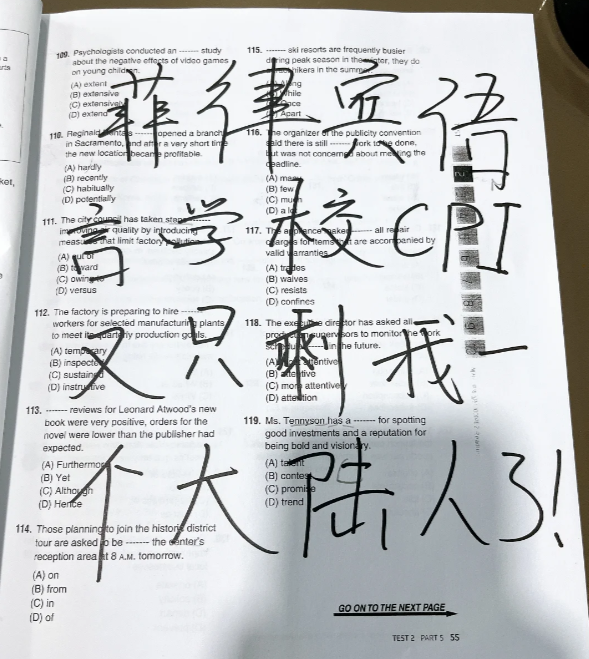 109. Psychologists conducted an ------- study
about the negative effects of video games
on young children.
(A) extent
(B) extensive
(C) extensively
(D) extend
110. Reginald ------- opened a branch
in Sacramento, and after a very short time
the new location became profitable.
(A) hardly
(B) recently
(C) habitually
(D) potentially
111. The city council has taken steps -------
improving air quality by introducing
measures that limit factory pollution.
(A) out of
(B) toward
(C) owing to
(D) versus
112. The factory is preparing to hire -------
workers for selected manufacturing plants
to meet its quarterly production goals.
(A) temporary
(B) inspected
(C) sustained
(D) instructive
113. ------- reviews for Leonard Atwood's new
book were very positive, orders for the
novel were lower than the publisher had
expected.
(A) Furthermore
(B) Yet
(C) Although
(D) Hence
114. Those planning to join the historic district
tour are asked to be ------- the center's
reception area at 8 A.M. tomorrow.
(A) on
(B) from
(C) in
(D) of
115. ------- ski resorts are frequently busier
during peak season in the winter, they do
hikers in the summer.
(A) Along
(B) While
(C) Once
(D) Apart
116. The organizer of the publicity convention
said there is still ------- work to be done,
but was not concerned about meeting the
deadline.
(A) many
(B) few
(C) much
(D) a lot
117. The appliance maker ------- all repair
charges for items that are accompanied by
valid warranties.
(A) trades
(B) waives
(C) resists
(D) confines
118. The executive director has asked all
production supervisors to monitor the work
schedule ------- in the future.
(A) most attentive
(B) attentive
(C) more attentively
(D) attention
119. Ms. Tennyson has a ------- for spotting
good investments and a reputation for
being bold and visionary.
(A) talent
(B) contest
(C) promise
(D) trend
GO ON TO THE NEXT PAGE
TEST 2 PART 5 55
菲律宾语
言学校CPI
又只剩我一
个大陆人了!